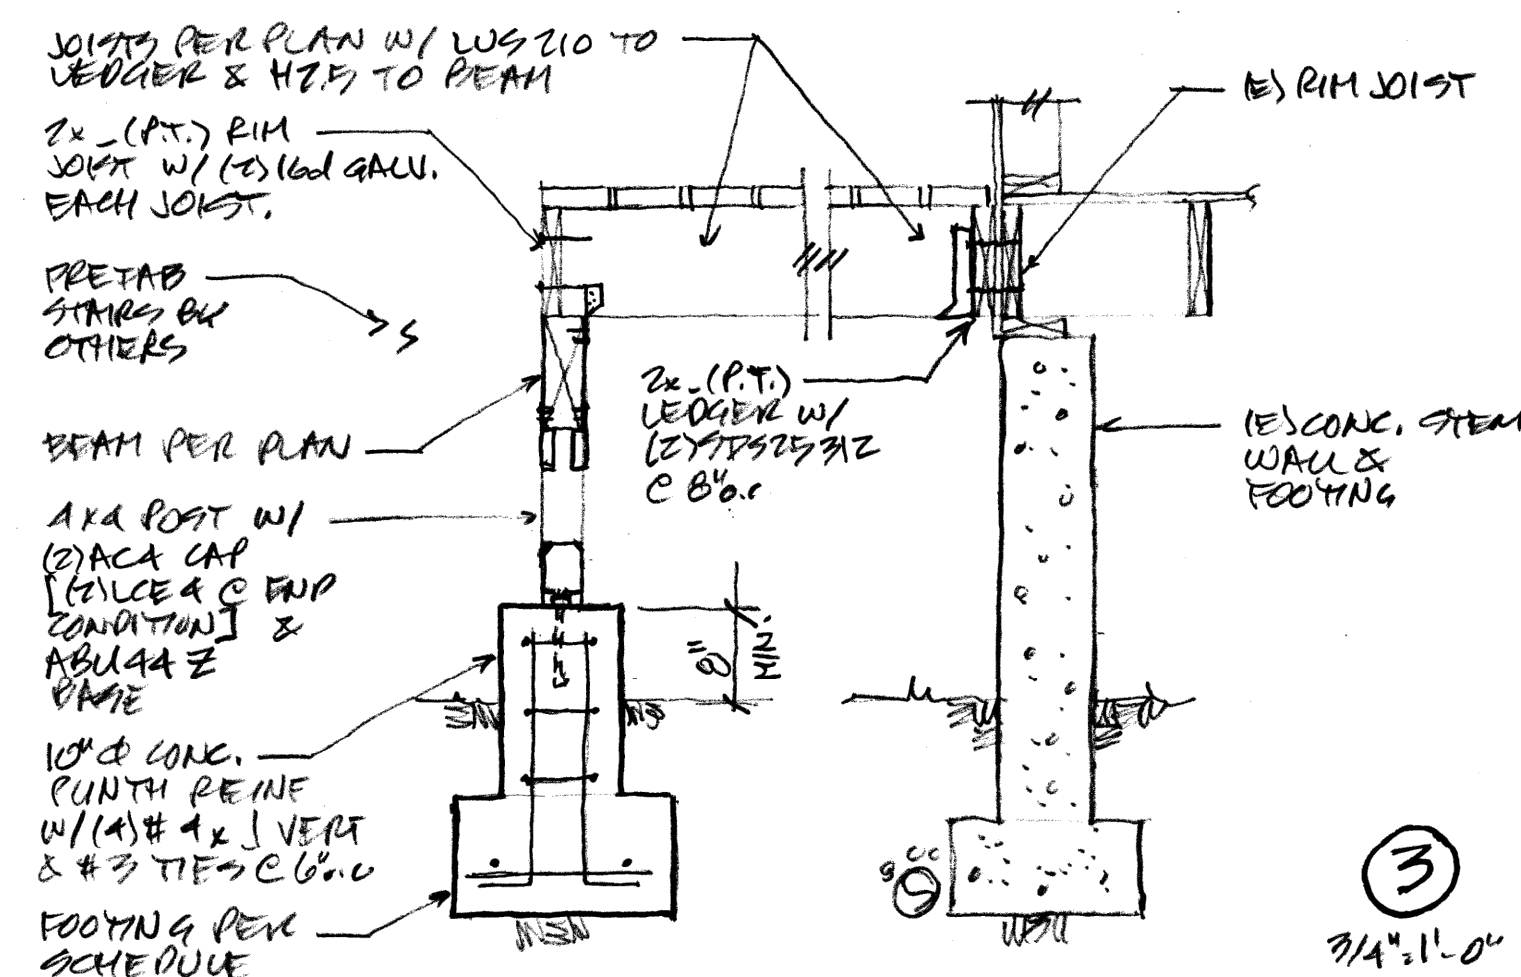 JOISTS PER PLAN W/ LUS210 TO
LEDGER & H2.5 TO BEAM
2x_(P.T.) RIM
JOIST W/ (2)16d GALV.
EACH JOIST.
PREFAB
STAIRS BY
OTHERS
BEAM PER PLAN
4x4 POST W/
(2)AC4 CAP
[(2)LCE4 @ END
CONDITION] &
ABU44Z
BASE
10"Φ CONC.
PLINTH REINF
W/(4)#4x⌡VERT
& #3 TIES @ 6"o.c
FOOTING PER
SCHEDULE
2x_(P.T.)
LEDGER W/
(2)SDS25312
@ 8"o.c
8"
MIN.
(E) RIM JOIST
(E)CONC. STEM
WALL &
FOOTING
3
3/4"=1'-0"